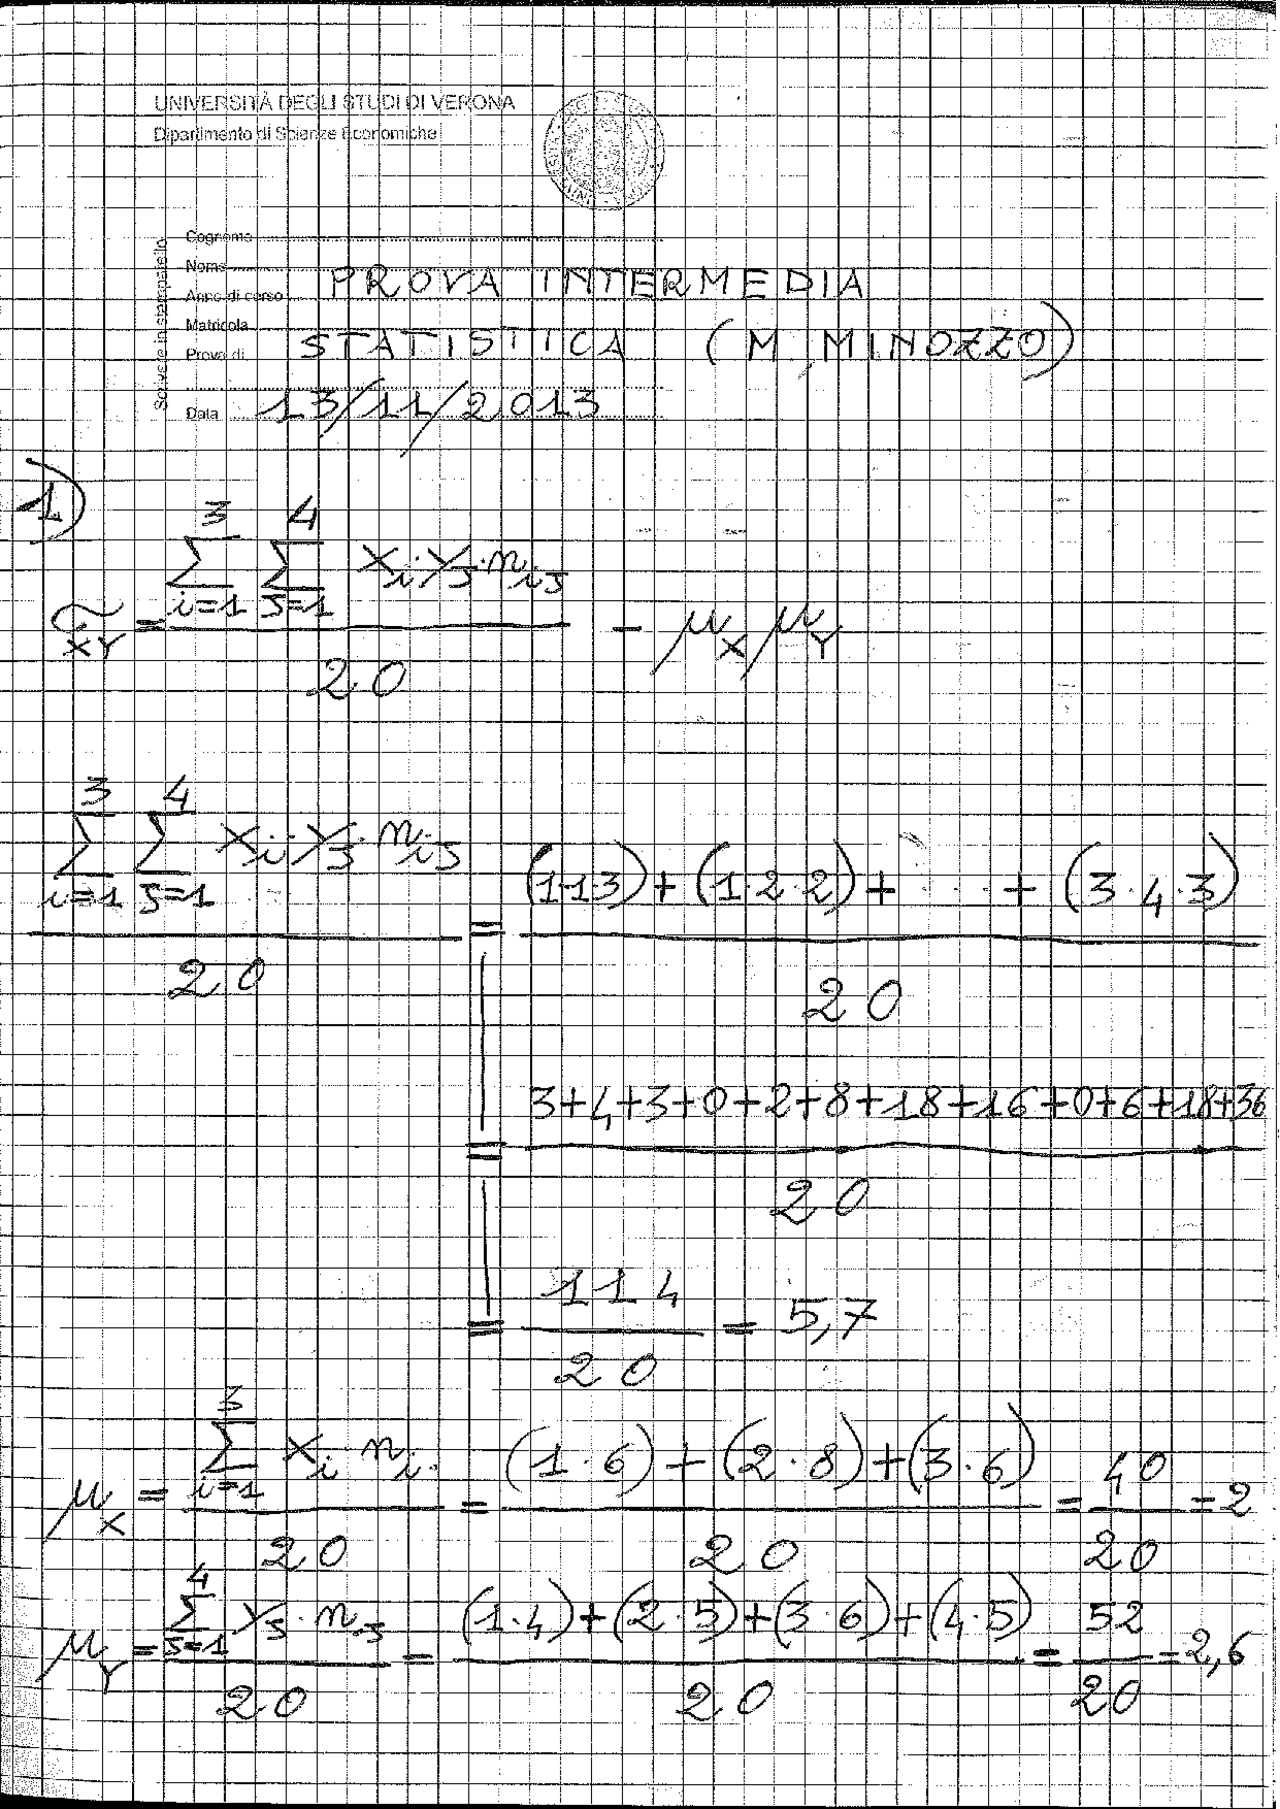 UNIVERSITÀ DEGLI STUDI DI VERONA
Dipartimento di Scienze Economiche
Scrivere in stampatello
Cognome
Nome
Anno di corso
PROVA INTERMEDIA
Matricola
Prova di
STATISTICA (M. MINOZZO)
Data 13/11/2013
1)
σ_XY = (∑_{i=1}^{3} ∑_{j=1}^{4} x_i · y_j · n_ij) / 20 − μ_X μ_Y
(∑_{i=1}^{3} ∑_{j=1}^{4} x_i · y_j · n_ij) / 20 = ((1·1·3) + (1·2·2) + . . . + (3·4·3)) / 20
= (3+4+3+0+2+8+18+16+0+6+18+36) / 20
= 114 / 20 = 5,7
μ_X = (∑_{i=1}^{3} x_i n_i.) / 20 = ((1·6) + (2·8) + (3·6)) / 20 = 40 / 20 = 2
μ_Y = (∑_{j=1}^{4} y_j · n_.j) / 20 = ((1·4) + (2·5) + (3·6) + (4·5)) / 20 = 52 / 20 = 2,6